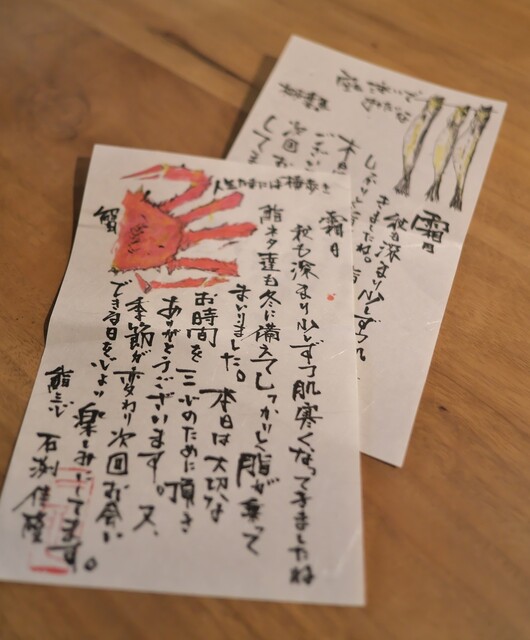 人生たまには横歩き
蟹
霜月
秋も深まり少しずつ肌寒くなってきましたね
鮨ネタ達も冬に備えてしっかりと脂が乗って
まいりました。本日は大切な
お時間を三ふのために頂き
ありがとうございます。又、
季節が変わり次回お会い
できる日を心より楽しみにしてます。
鮨三ふ
石渕佳隆
霜月
秋も深まり少しずつ肌
きましたね。
しっかりと
本日
ござい
次回お
してま